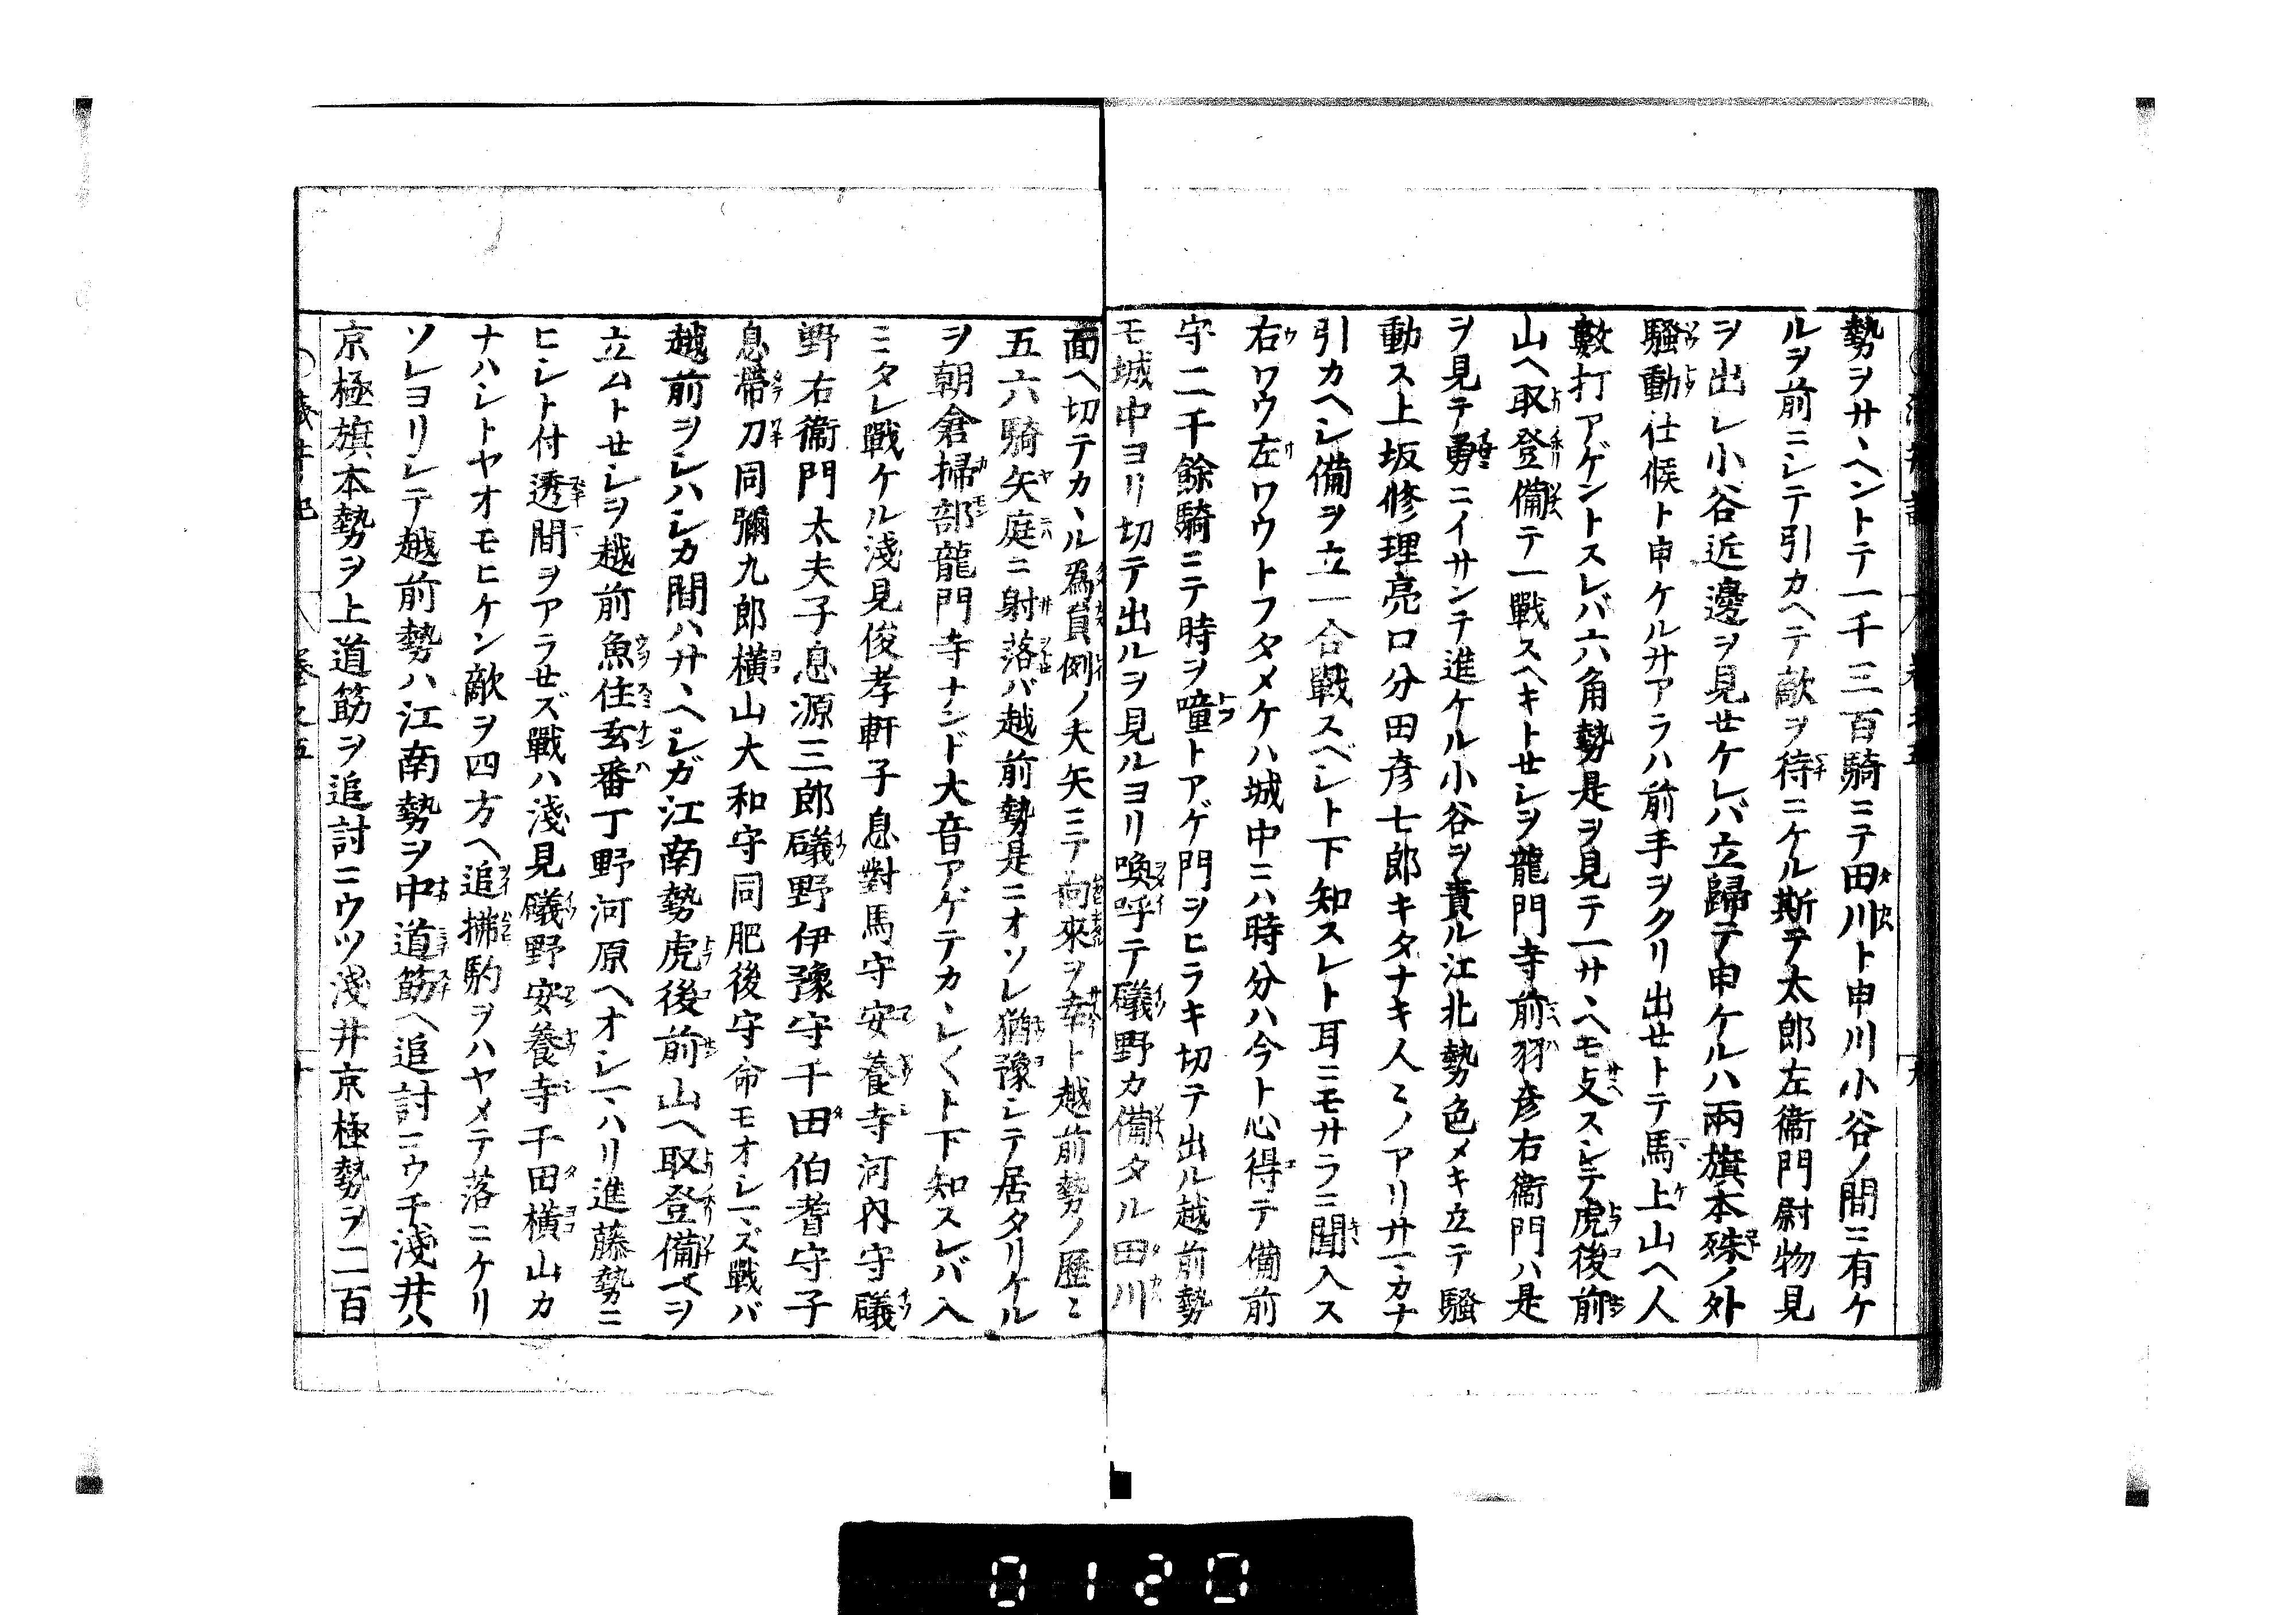 勢ヲサヽヘントテ一千三百騎ニテ田川ト申川小谷ノ間ニ有ケ
ルヲ前ニシテ引カヘテ敵ヲ待ニケル斯テ太郎左衞門尉物見
ヲ出シ小谷近邊ヲ見セケレバ立歸テ申ケルハ兩旗本殊ノ外
騷動仕候ト申ケルサアラハ前手ヲクリ出セトテ馬上山ヘ人
數打アゲントスレバ六角勢是ヲ見テ一サヽヘモ支スシテ虎後前
山ヘ取登備テ一戰スヘキトセシヲ龍門寺前羽彦右衞門ハ是
ヲ見テ勇ニイサンテ進ケル小谷ヲ責ル江北勢色メキ立テ騷
動ス上坂修理亮口分田彦七郎キタナキ人〻ノアリサマカナ
引カヘシ備ヲ立一合戰スベシト下知スレト耳ニモサラニ聞入ス
右ワウ左ワウトフタメケハ城中ニハ時分ハ今ト心得テ備前
守二千餘騎ニテ時ヲ噇トアゲ門ヲヒラキ切テ出ル越前勢
モ城中ヨリ切テ出ルヲ見ルヨリ喚呼テ礒野カ備タル田川
面ヘ切テカヽル爲員例ノ大矢ニテ向來ヲ幸ト越前勢ノ歷〻
五六騎矢庭ニ射落バ越前勢是ニオソレ猶豫シテ居タリケル
ヲ朝倉掃部龍門寺ナンド大音アゲテカヽレ〱ト下知スレバ入
ミタレ戰ケル淺見俊孝軒子息對馬守安養寺河內守礒
野右衞門太夫子息源三郎礒野伊豫守千田伯耆守子
息帶刀同彌九郎橫山大和守同肥後守命モオシマズ戰バ
越前ヲシハシカ間ハサヽヘシガ江南勢虎後前山ヘ取登備ベヲ
立ムトセシヲ越前魚住玄番丁野河原ヘオシマハリ進藤勢ニ
ヒシト付透間ヲアラセズ戰ハ淺見礒野安養寺千田橫山カ
ナハシトヤオモヒケン敵ヲ四方ヘ追拂駒ヲハヤメテ落ニケリ
ソレヨリシテ越前勢ハ江南勢ヲ中道筋ヘ追討ニウチ淺井ハ
京極旗本勢ヲ上道筋ヲ追討ニウツ淺井京極勢ヲ二百
0120